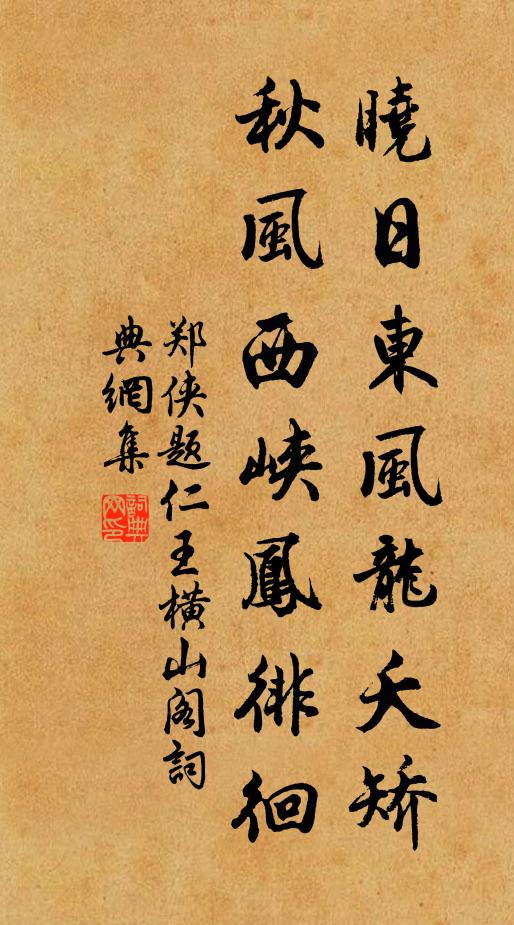 曉日東風龍夭矯
秋風西峡鳳徘徊
郑侠题仁王橫山阁詞
典網集
詞典
网印